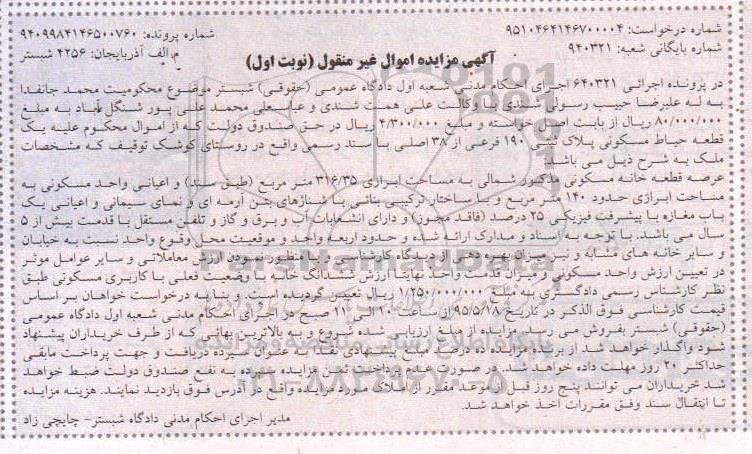 شماره درخواست: ۹۵۱۰۴۶۴۱۴۶۷۰۰۰۰۴
شماره پرونده: ۹۴۰۹۹۸۴۱۴۶۵۰۰۷۶۰
شماره بایگانی شعبه: ۹۴۰۳۲۱
م الف آذربایجان: ۴۲۵۶ شبستر
آگهی مزایده اموال غیر منقول (نوبت اول)
در پرونده اجرائی ۶۴۰۳۲۱ اجرای احکام مدنی شعبه اول دادگاه عمومی (حقوقی) شبستر موضوع محکومیت محمد جانفدا
به له علیرضا حبیب رسولی شندی با وکالت علی همت شندی و عباسعلی محمد علی پور شنگل آباد به مبلغ
۸۰/۰۰۰/۰۰۰ ریال از بابت اصل خواسته و مبلغ ۴/۳۰۰/۰۰۰ ریال در حق صندوق دولت که از اموال محکوم علیه یک
قطعه حیاط مسکونی پلاک ثبتی ۱۹۰ فرعی از ۳۸ اصلی با سند رسمی واقع در روستای کوشک توقیف که مشخصات
ملک به شرح ذیل می باشد:
عرصه قطعه خانه مسکونی مذکور شمالی به مساحت ابرازی ۳۱۶/۳۵ متر مربع (طبق سند) و اعیانی واحد مسکونی به
مساحت ابرازی حدود ۱۴۰ متر مربع و با ساختار ترکیبی بنائی با شناژهای بتن آرمه ای و نمای سیمانی و اعیانی یک
باب مغازه با پیشرفت فیزیکی ۲۵ درصد (فاقد مجوز) و دارای انشعابات آب و برق و گاز و تلفن مستقل با قدمت بیش از ۵
سال می باشد. با توجه به اسناد و مدارک ارائه شده و حدود اربعه واحد و موقعیت محل وقوع واحد نسبت به خیابان
و سایر خانه های مشابه و نیز میزان بهره دهی از دیدگاه کارشناسی و با منظور نمودن ارزش معاملاتی و سایر عوامل موثر
در تعیین ارزش واحد مسکونی و میزان قدمت واحد نهایتا ارزش ششدانگ خانه با وضعیت فعلی با کاربری مسکونی طبق
نظر کارشناس رسمی دادگستری به مبلغ ۱/۲۵۰/۰۰۰/۰۰۰ ریال تعیین گردیده است. و بنا به درخواست خواهان بر اساس
قیمت کارشناسی فوق الذکر در تاریخ ۹۵/۵/۱۸ از ساعت ۱۰ الی ۱۱ صبح در اجرای احکام مدنی شعبه اول دادگاه عمومی
(حقوقی) شبستر بفروش می رسد. مزایده از مبلغ ارزیابی شده شروع و به بالاترین بهائی که از طرف خریداران پیشنهاد
شود واگذار خواهد شد از برنده مزایده ده درصد مبلغ پیشنهادی نقدا به عنوان سپرده دریافت و جهت پرداخت مابقی
حداکثر ۲۰ روز مهلت داده خواهد شد. در صورت عدم پرداخت ثمن مزایده سپرده به نفع صندوق دولت ضبط خواهد
شد خریداران می توانند پنج روز قبل از موعد مقرر از املاک مورد مزایده واقع در آدرس فوق بازدید نمایند. هزینه مزایده
تا انتقال سند وفق مقررات اخذ خواهد شد.
مدیر اجرای احکام مدنی دادگاه شبستر- چایچی زاد
۰۲۱-۸۸۳۴۹۶۷۰-۵